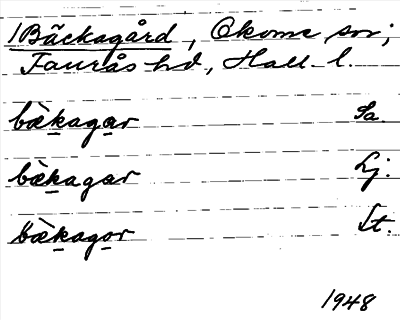 1 Bäckagård, Okome sn;
Faurås hd, Hall. l.
bæ̀kagar Sa.
bæ̀kagar Lj.
bæ̀kagor St.
1948